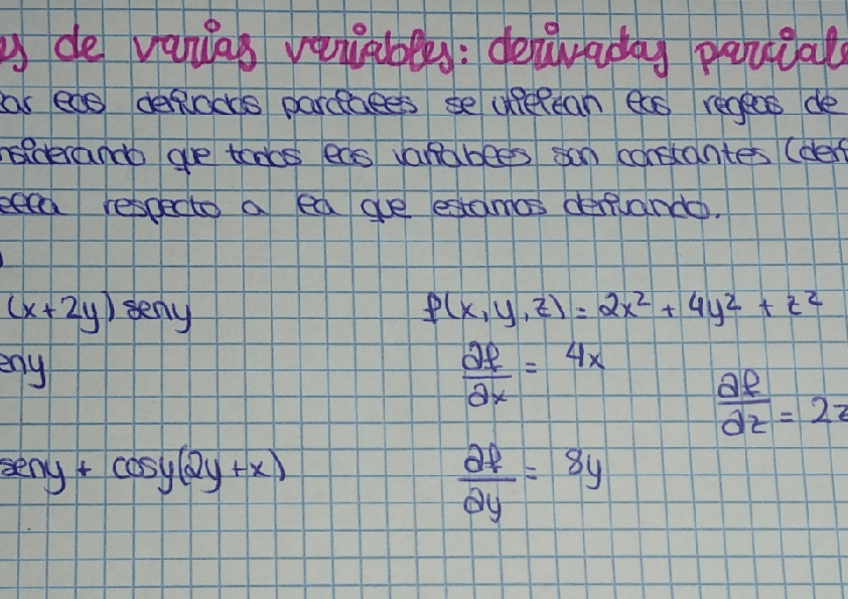 s de varias variables: derivadas parcial
ar las derivadas parciales se utilizan las reglas de
nsiderando que todas las variables son constantes (deri
ella respecto a la que estamos derivando.
(x+2y) seny
f(x,y,z) = 2x² + 4y² + z²
eny
∂f/∂x = 4x
∂f/∂z = 2z
seny + cosy(2y+x)
∂f/∂y = 8y